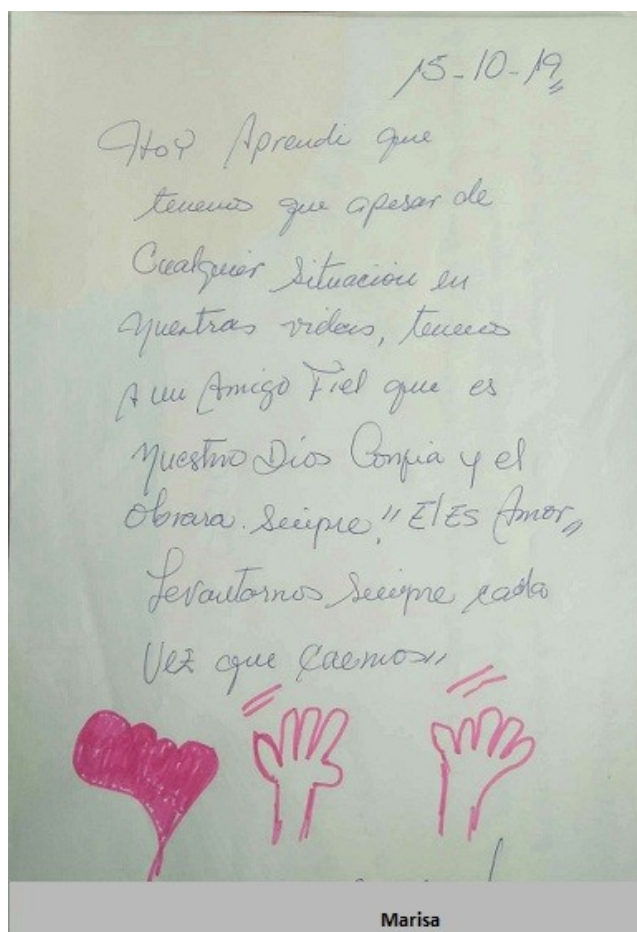 15-10-19
Hoy Aprendi que
tenemos que apesar de
Cualquier situación en
nuestras vidas, tenemos
A un Amigo Fiel que es
Nuestro Dios Confia y el
Obrara. Siempre!! El Es Amor,,
Levantarnos Siempre cada
Vez que Caemos,,
Marisa